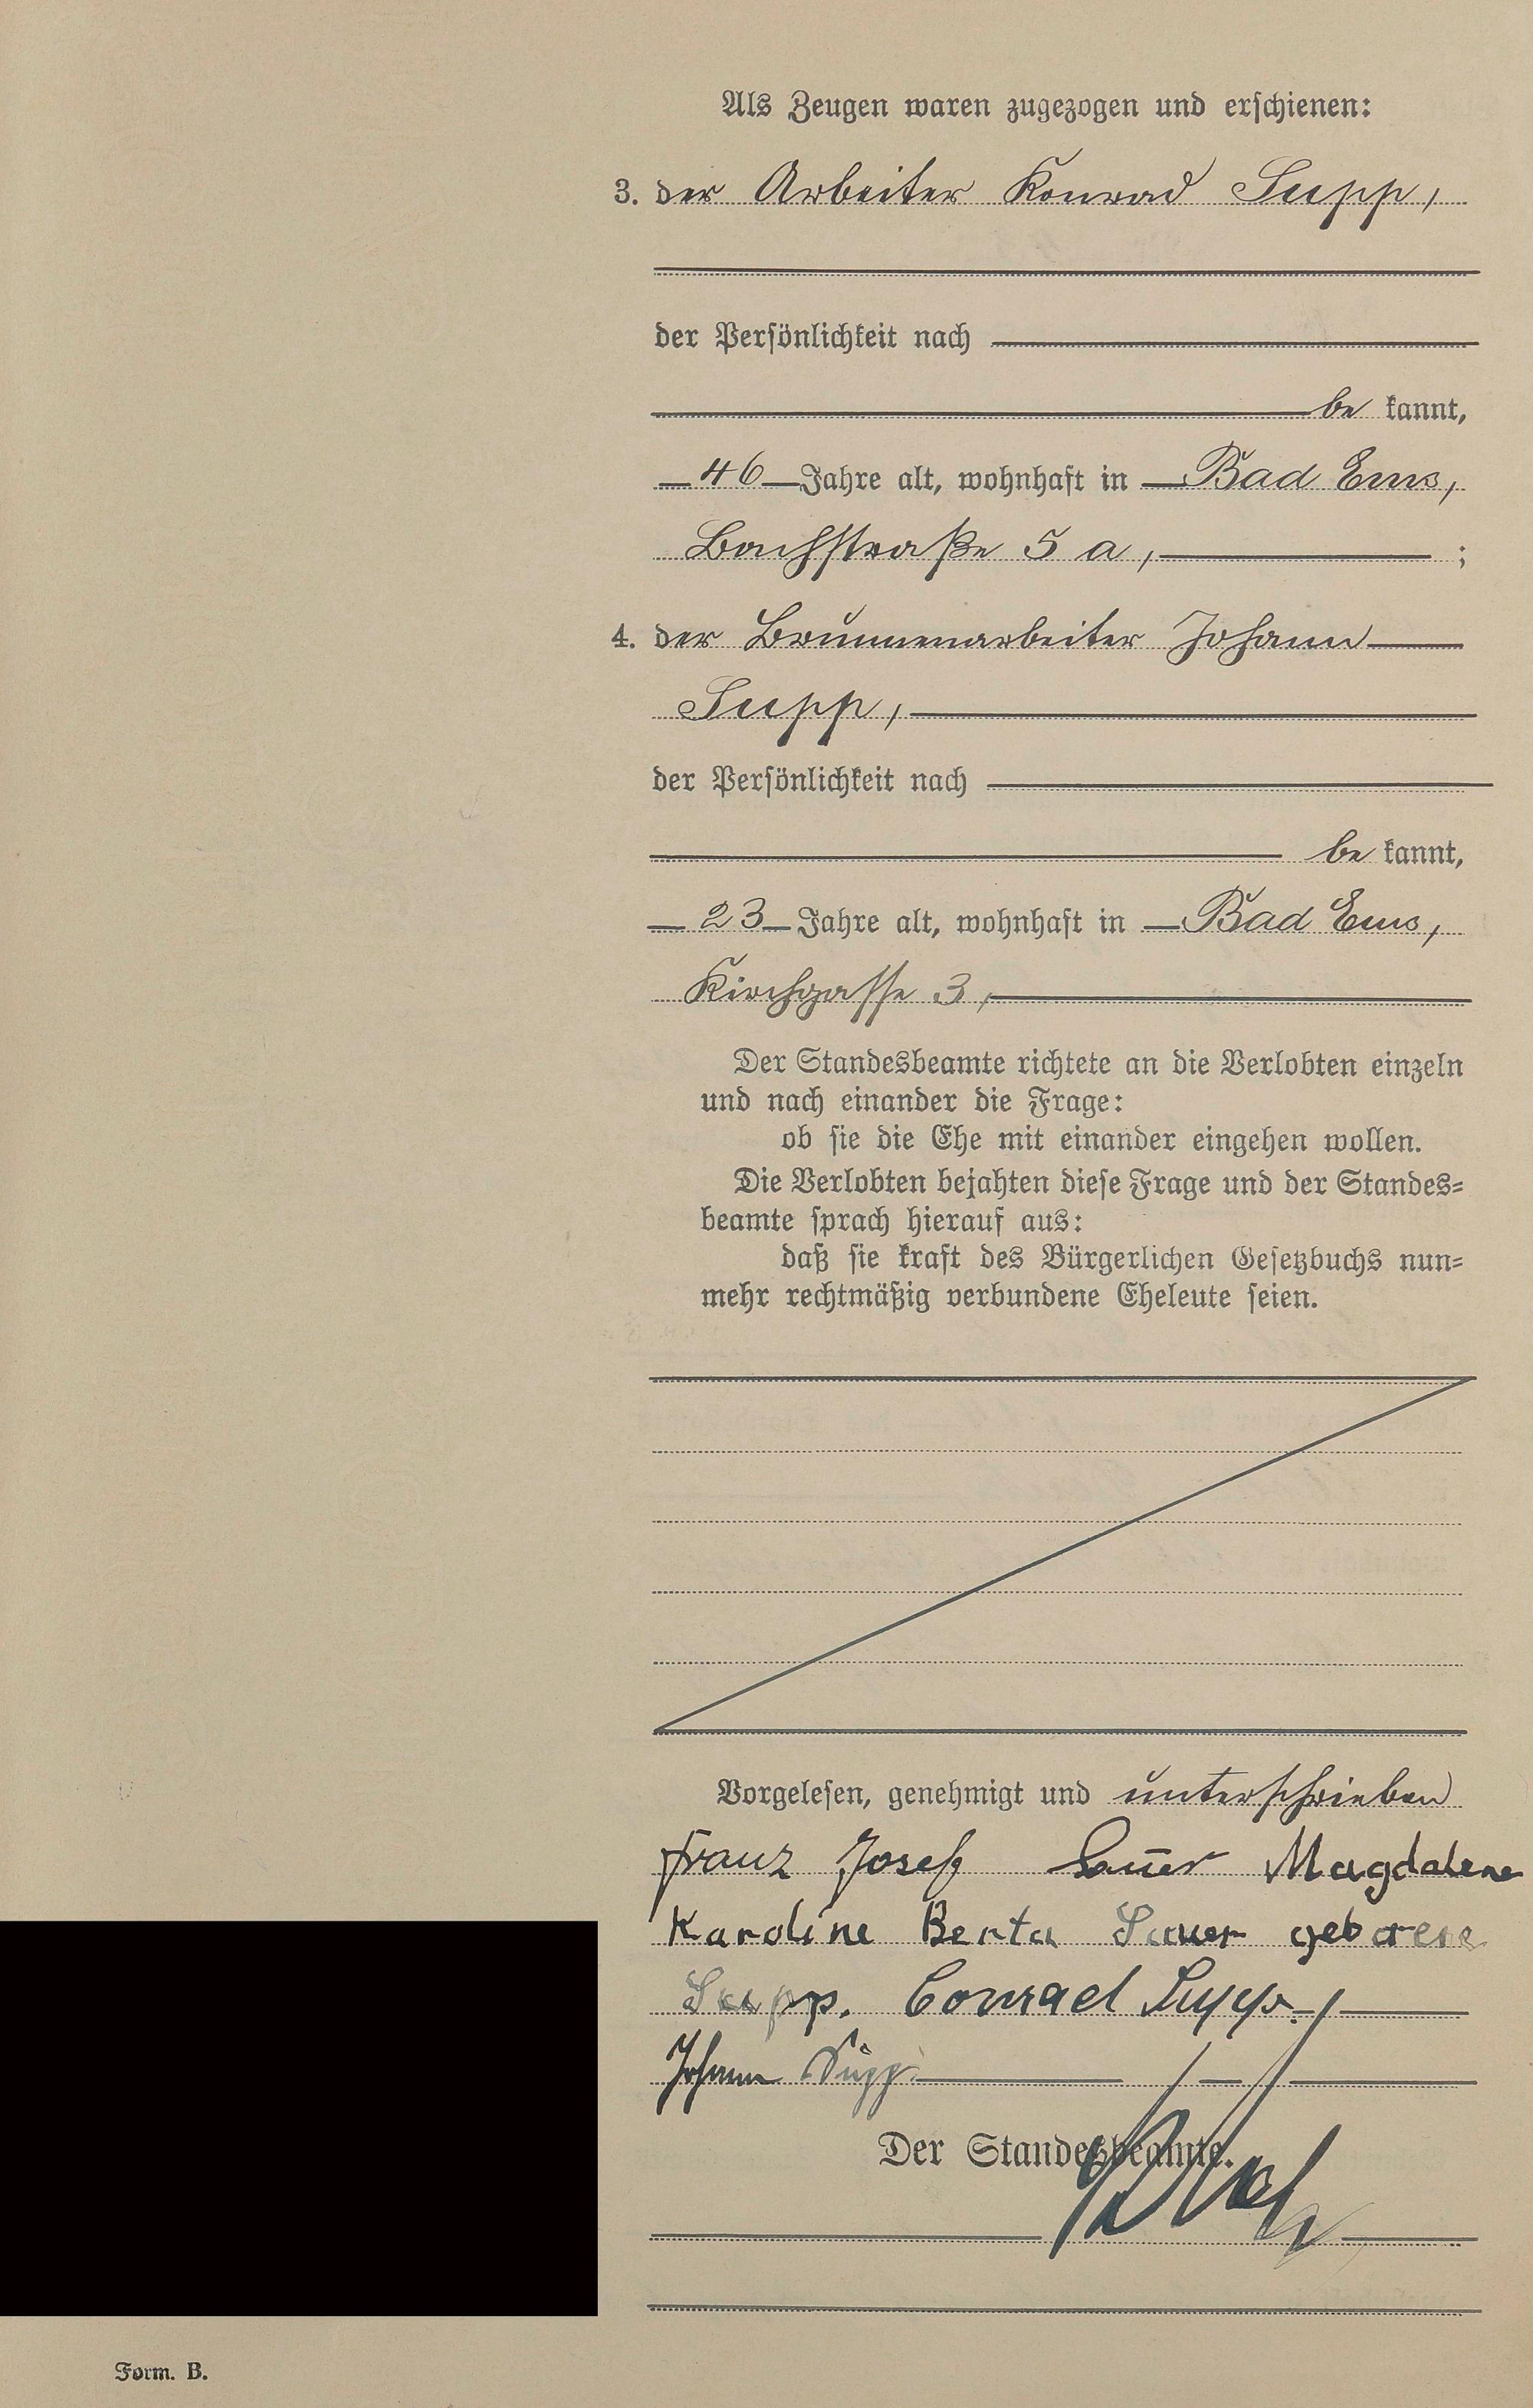 Als Zeugen waren zugezogen und erschienen:
3. der Arbeiter Konrad Supp,
der Persönlichkeit nach
be kannt,
46 Jahre alt, wohnhaft in Bad Ems,
Bachstraße 5 a, ;
4. der Brunnenarbeiter Johann
Supp,
der Persönlichkeit nach
be kannt,
23 Jahre alt, wohnhaft in Bad Ems,
Kirchgasse 3,
Der Standesbeamte richtete an die Verlobten einzeln
und nach einander die Frage:
ob sie die Ehe mit einander eingehen wollen.
Die Verlobten bejahten diese Frage und der Standes=
beamte sprach hierauf aus:
daß sie kraft des Bürgerlichen Gesetzbuchs nun=
mehr rechtmäßig verbundene Eheleute seien.
Vorgelesen, genehmigt und unterschrieben
Franz Josef Sauer Magdalene
Karoline Berta Sauer geborene
Supp. Conrad Supp.
Johann Supp
Der Standesbeamte.
Form. B.